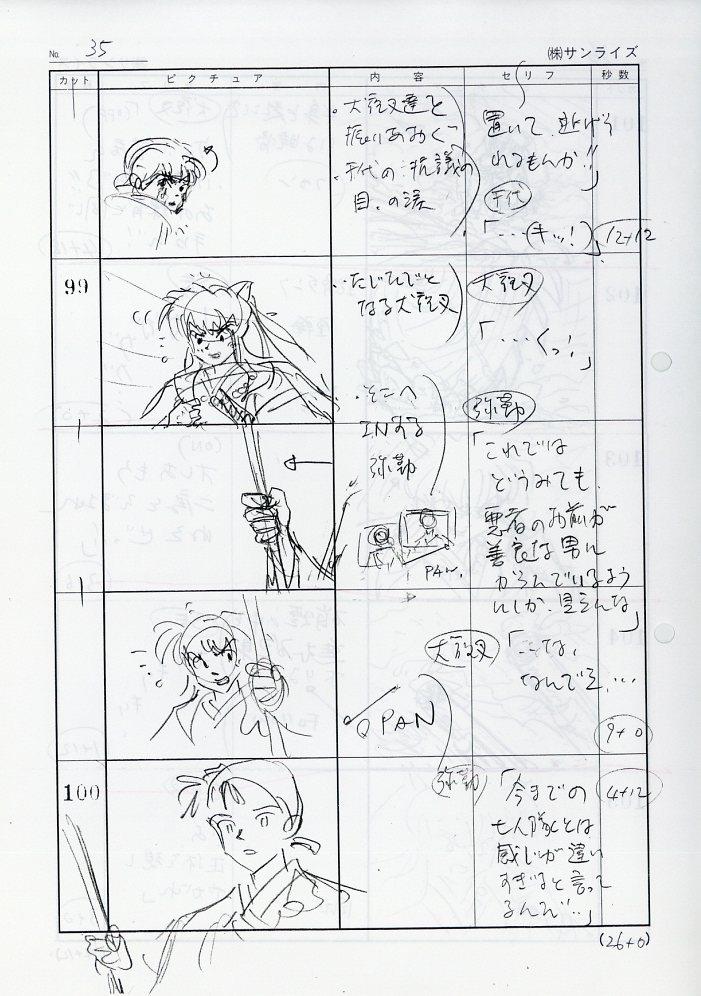 No. 35
(株)サンライズ
カット ピクチュア 内容 セリフ 秒数
・犬夜叉達と
振りあおぐ
・千代の抗議の
目。の涙
置いて逃げら
れるもんか!!」
千代
「…(キッ!)」
12+12
99
・たじたじと
なる犬夜叉
犬夜叉
「…くっ!」
・そこへ
INする
弥勒
PAN.
弥勒
「これでは
どうみても、
悪者のお前が
善良な男に
からんでいるよう
にしか、見えんな」
PAN
犬夜叉
「…な、
なんでえ…
9+0
100
弥勒
「今までの
七人隊とは
感じが違い
すぎると言って
るんだ…」
4+12
(26+0)